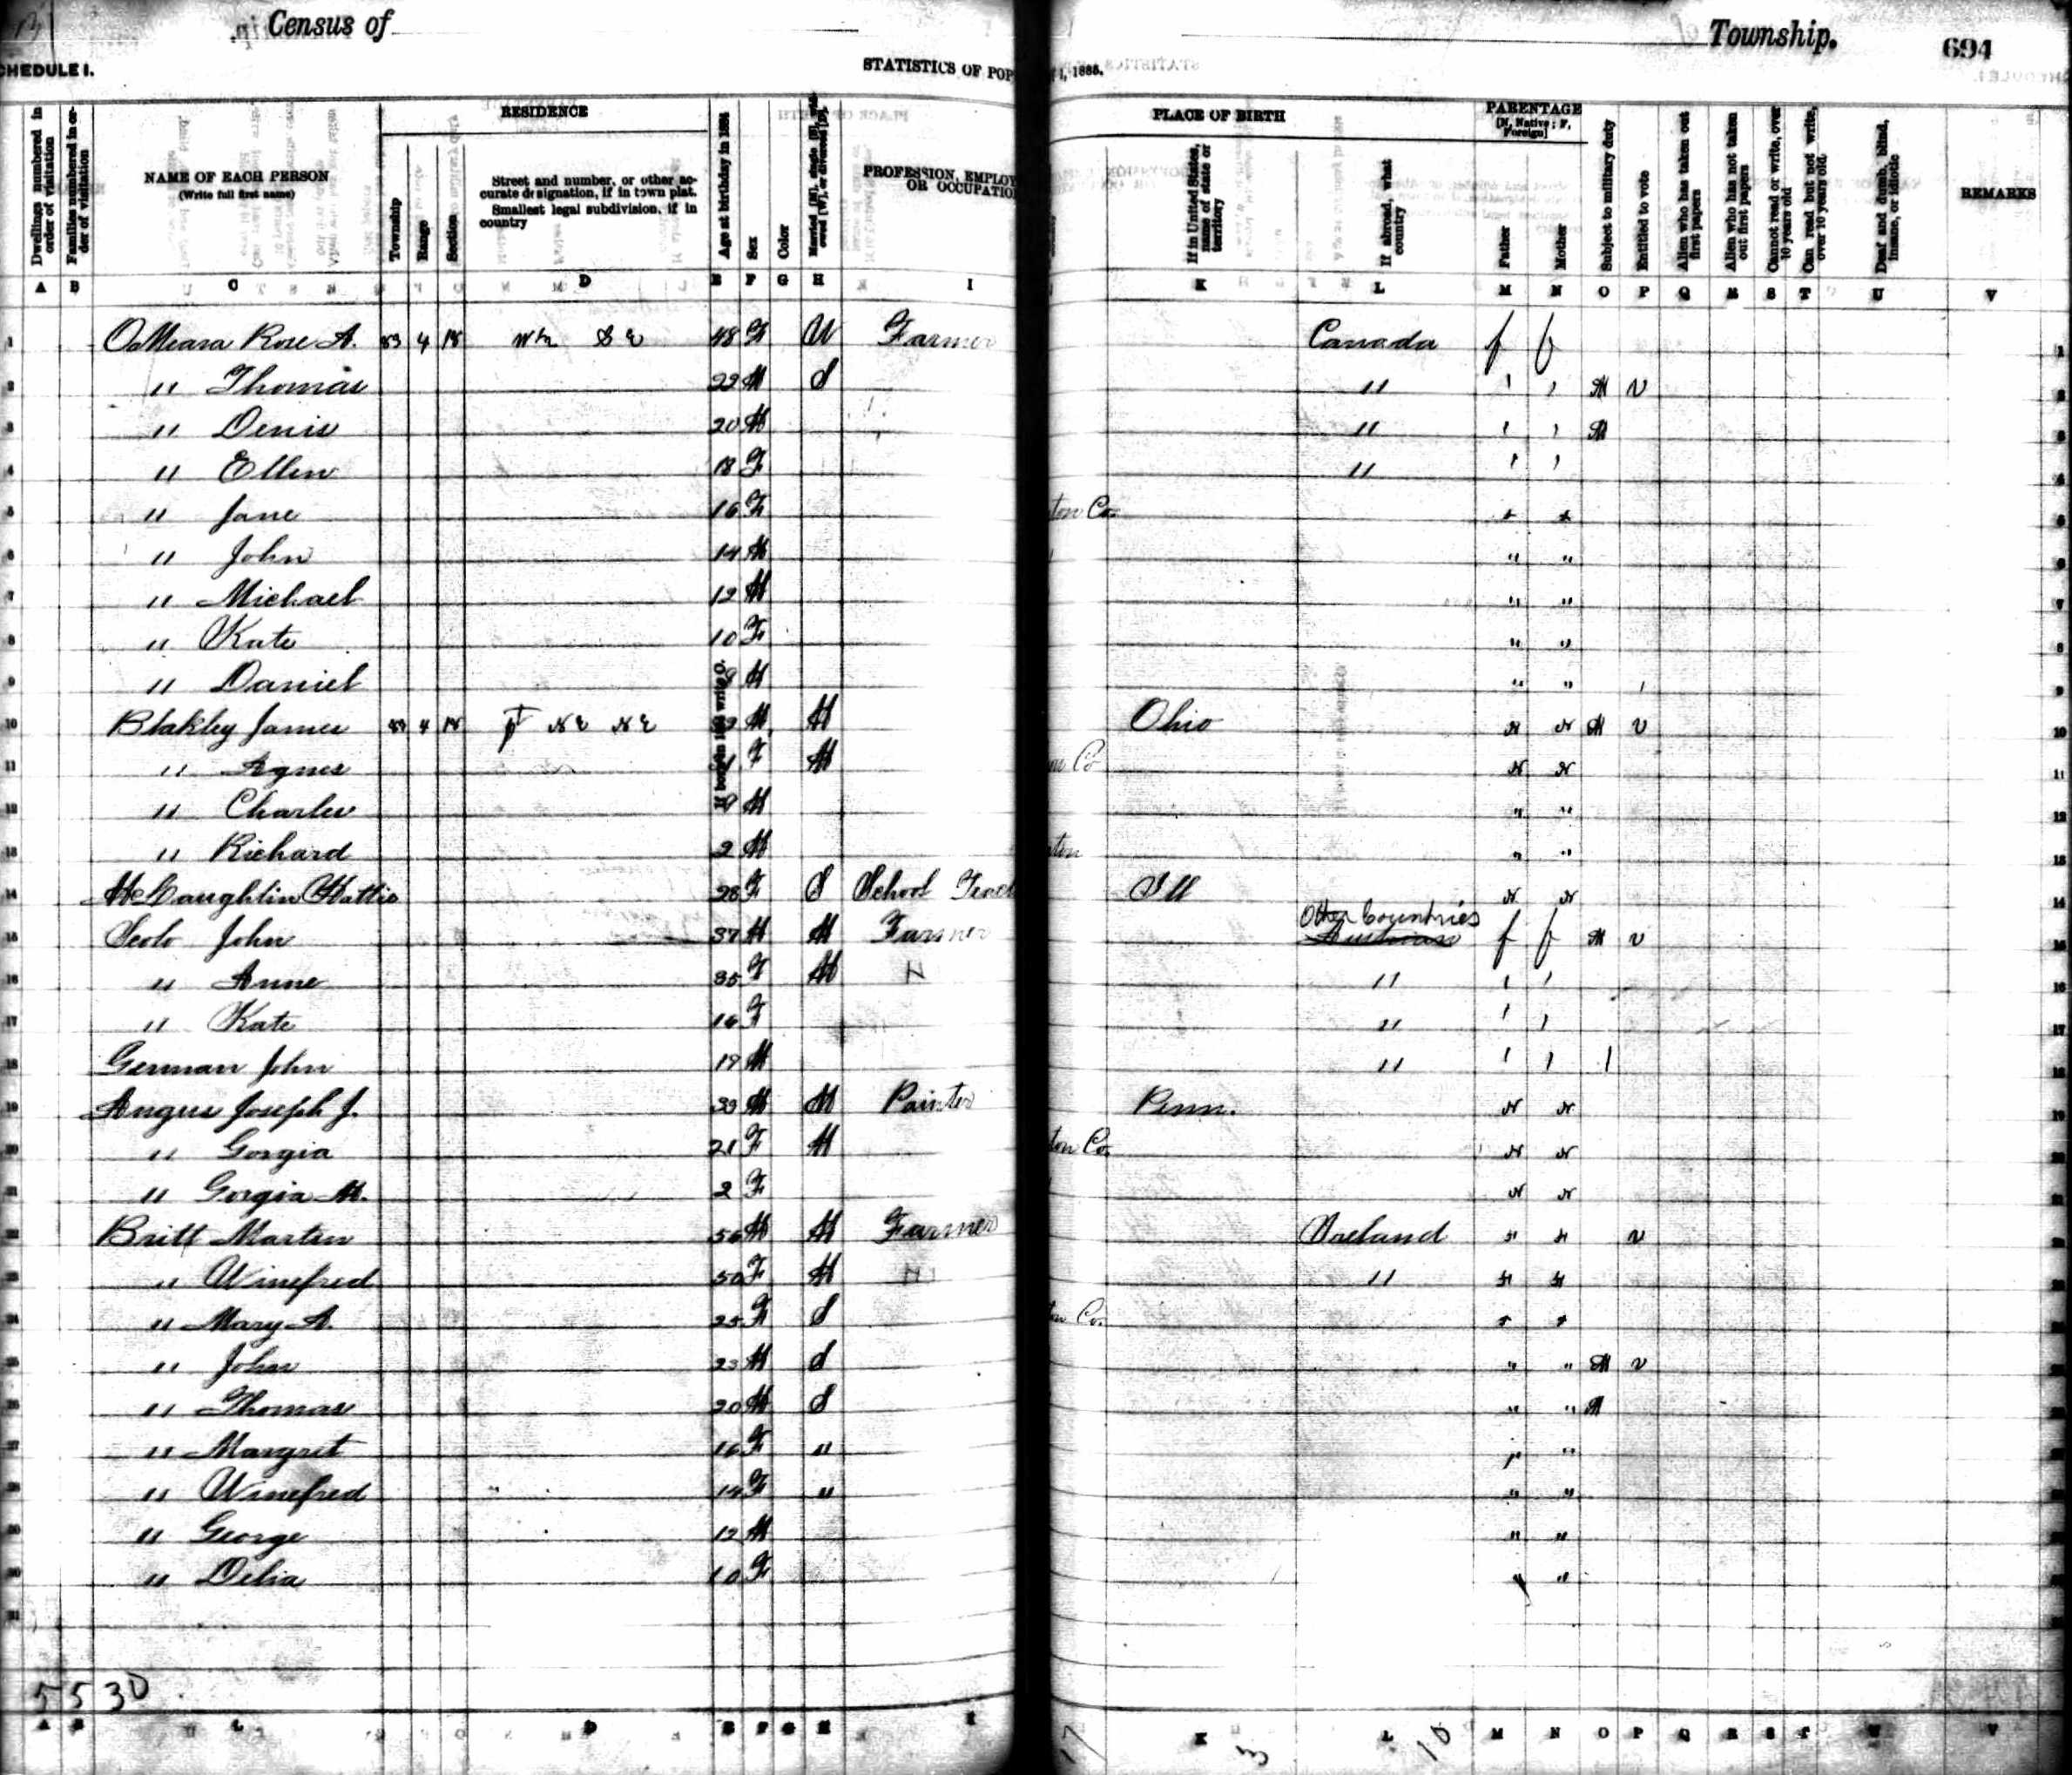 Census of
Township.
694
SCHEDULE I.
STATISTICS OF POP
1, 1885.
RESIDENCE
PLACE OF BIRTH
PARENTAGE
[N, Native; F, Foreign]
Dwellings numbered in order of visitation
Families numbered in order of visitation
NAME OF EACH PERSON
(Write full first name)
Township
Range
Section
Street and number, or other accurate designation, if in town plat.
Smallest legal subdivision, if in country
Age at birthday in 1884
If born in 1884 write 0.
Sex
Color
Married [M], single [S], widowed [W], or divorced [D].
PROFESSION, EMPLOY
OR OCCUPATION
If in United States, name of state or territory
If abroad, what country
Father
Mother
Subject to military duty
Entitled to vote
Alien who has taken out first papers
Alien who has not taken out first papers
Cannot read or write, over 10 years old
Can read but not write, over 10 years old.
Deaf and dumb, blind, insane, or idiotic
REMARKS
A B C D E F G H I K L M N O P Q R S T U V
1 O'Meara Rose A. 83 4 18 W½ SE 48 F W Farmer Canada f f
2 " Thomas 22 M S " ' ' M V
3 " Denis 20 M " ' ' M
4 " Ellen 18 F " ' '
5 " Jane 16 F ton Co.
6 " John 14 M " "
7 " Michael 12 M " "
8 " Kate 10 F " "
9 " Daniel M " "
10 Blakley James 4 18 pt NE NE M M Ohio N N M V
11 " Agnes F M Co N N
12 " Charles 9 M " "
13 " Richard 2 M ton " "
14 McLaughlin Hattie 28 F S School Teach Ill N N
15 John 37 M M Farmer Other Countries Austrian f f M V
16 " Anne 35 F M " ' '
17 " Kate 16 F " ' '
18 German John 19 M " ' '
19 Angus Joseph J. 33 M M Painter Penn. N N
20 " Gorgia 21 F M ton Co. N N
21 " Gorgia M. 2 F N N
22 Britt Martin 56 M M Farmer Ireland V
23 " Winefred 50 F M "
24 " Mary A. 25 F S Co.
25 " John 23 M S " " M V
26 " Thomas 20 M S " " M
27 " Margret 16 F " "
28 " Winefred 14 F " " "
29 " George 12 M " "
30 " Delia 10 F " "
31
5 5 30
17 3 10